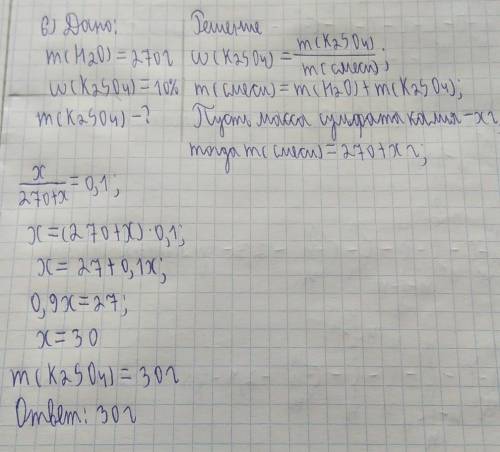 6) Дано:
m(H2O)=270г
w(K2SO4)=10%
m(K2SO4)-?
Решение
w(K2SO4)=m(K2SO4)/m(смеси);
m(смеси)=m(H2O)+m(K2SO4);
Пусть масса сульфата калия-xг
тогда m(смеси)=270+xг;
x/270+x=0,1;
x=(270+x)·0,1;
x=27+0,1x;
0,9x=27;
x=30
m(K2SO4)=30г
Ответ: 30г